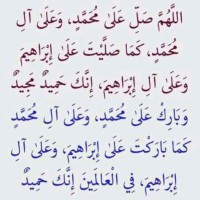 اللَّهُمَّ صَلِّ عَلَىٰ مُحَمَّدٍ، وَعَلَىٰ آلِ
مُحَمَّدٍ، كَمَا صَلَّيْتَ عَلَىٰ إِبْرَاهِيمَ
وَعَلَىٰ آلِ إِبْرَاهِيمَ، إِنَّكَ حَمِيدٌ مَجِيدٌ
وَبَارِكْ عَلَىٰ مُحَمَّدٍ، وَعَلَىٰ آلِ مُحَمَّدٍ
كَمَا بَارَكْتَ عَلَىٰ إِبْرَاهِيمَ، وَعَلَىٰ آلِ
إِبْرَاهِيمَ، فِي الْعَالَمِينَ إِنَّكَ حَمِيدٌ